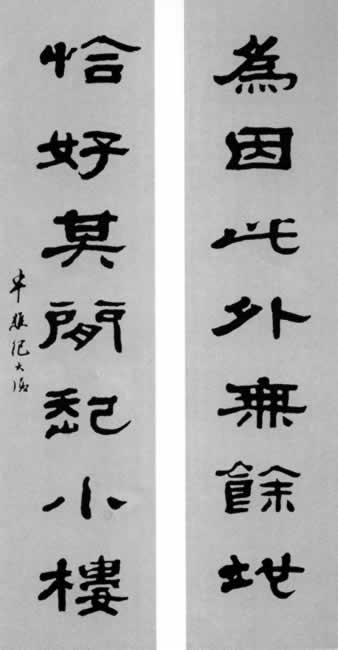 為因此外無餘地
恰好其間起小樓